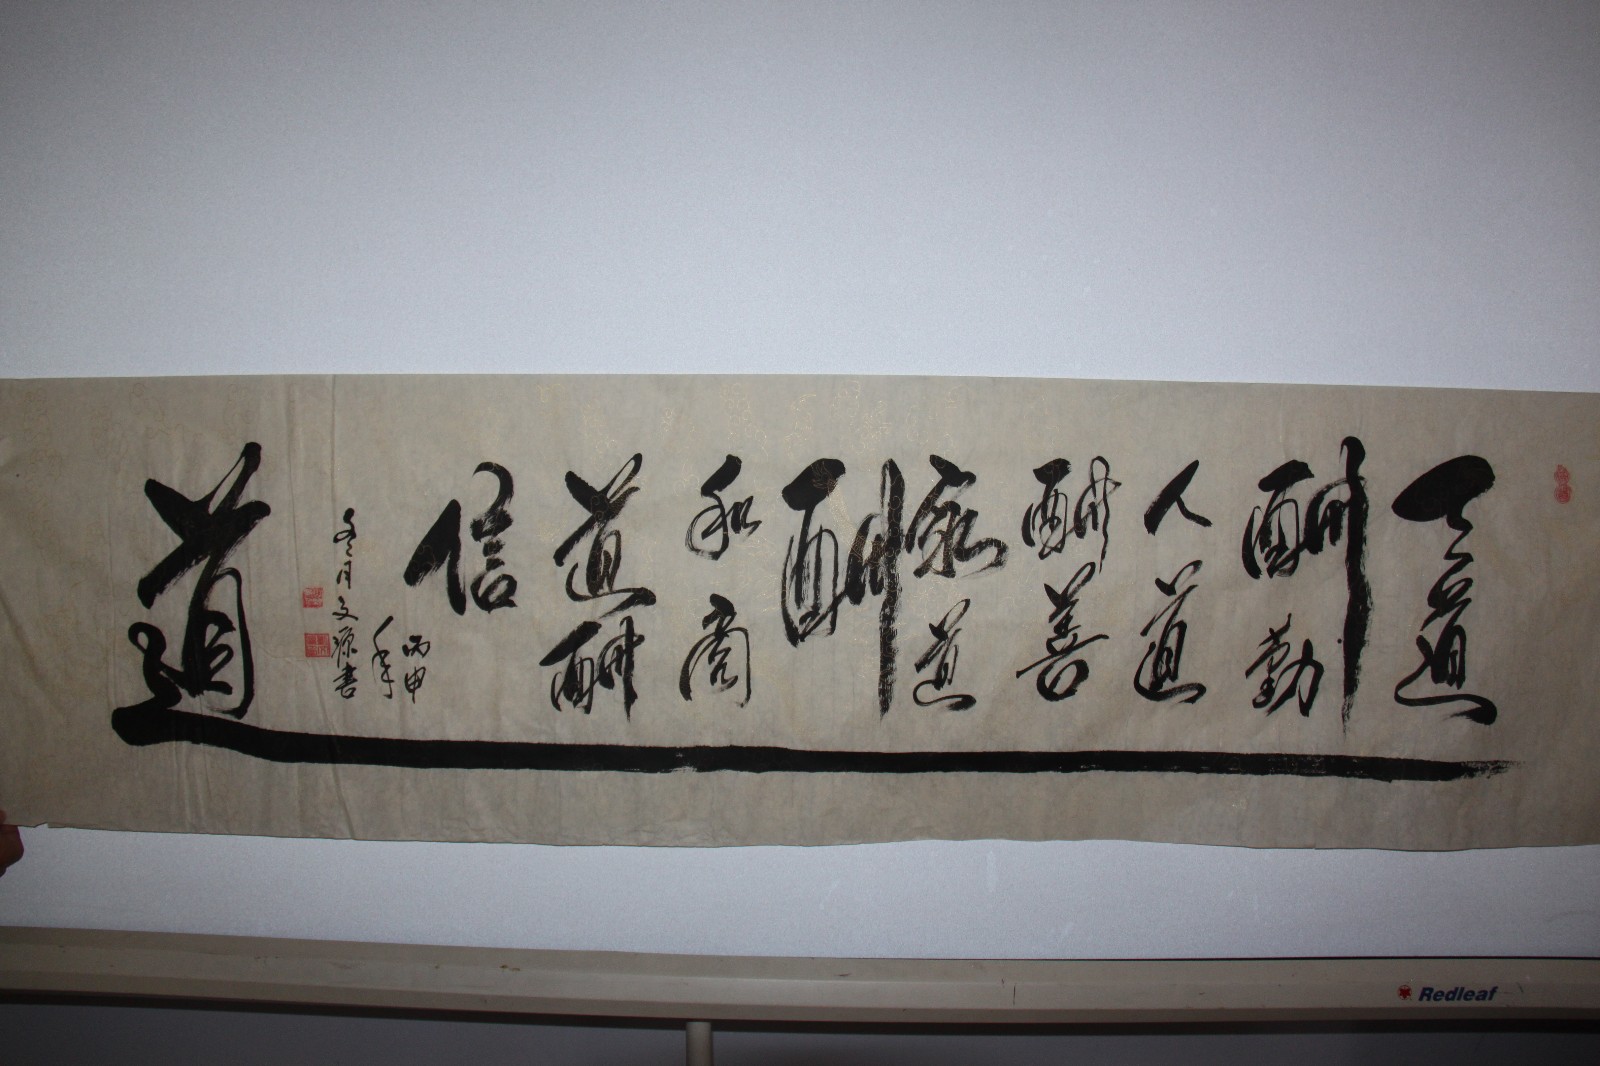 天道
酬勤
人道
酬善
家道
酬
和商
道酬
信
丙申
年
冬月文源書
道
Redleaf